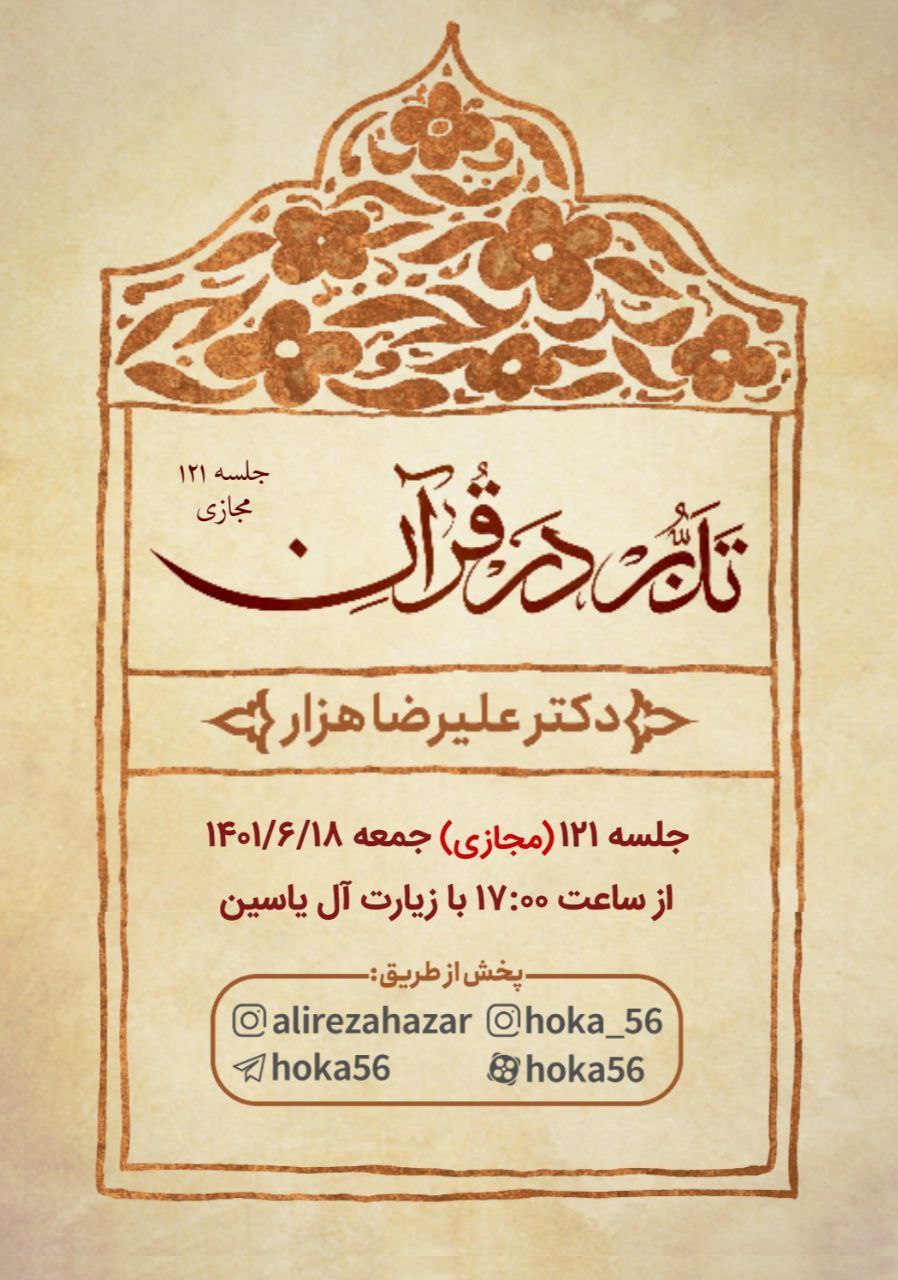 جلسه ۱۲۱
مجازی
تَدَبُّر دَر قُرآنِ
دکتر علیرضا هزار
جلسه ۱۲۱ (مجازی) جمعه ۱۴۰۱/۶/۱۸
از ساعت ۱۷:۰۰ با زیارت آل یاسین
پخش از طریق:
alirezahazar hoka_56
hoka56 hoka56